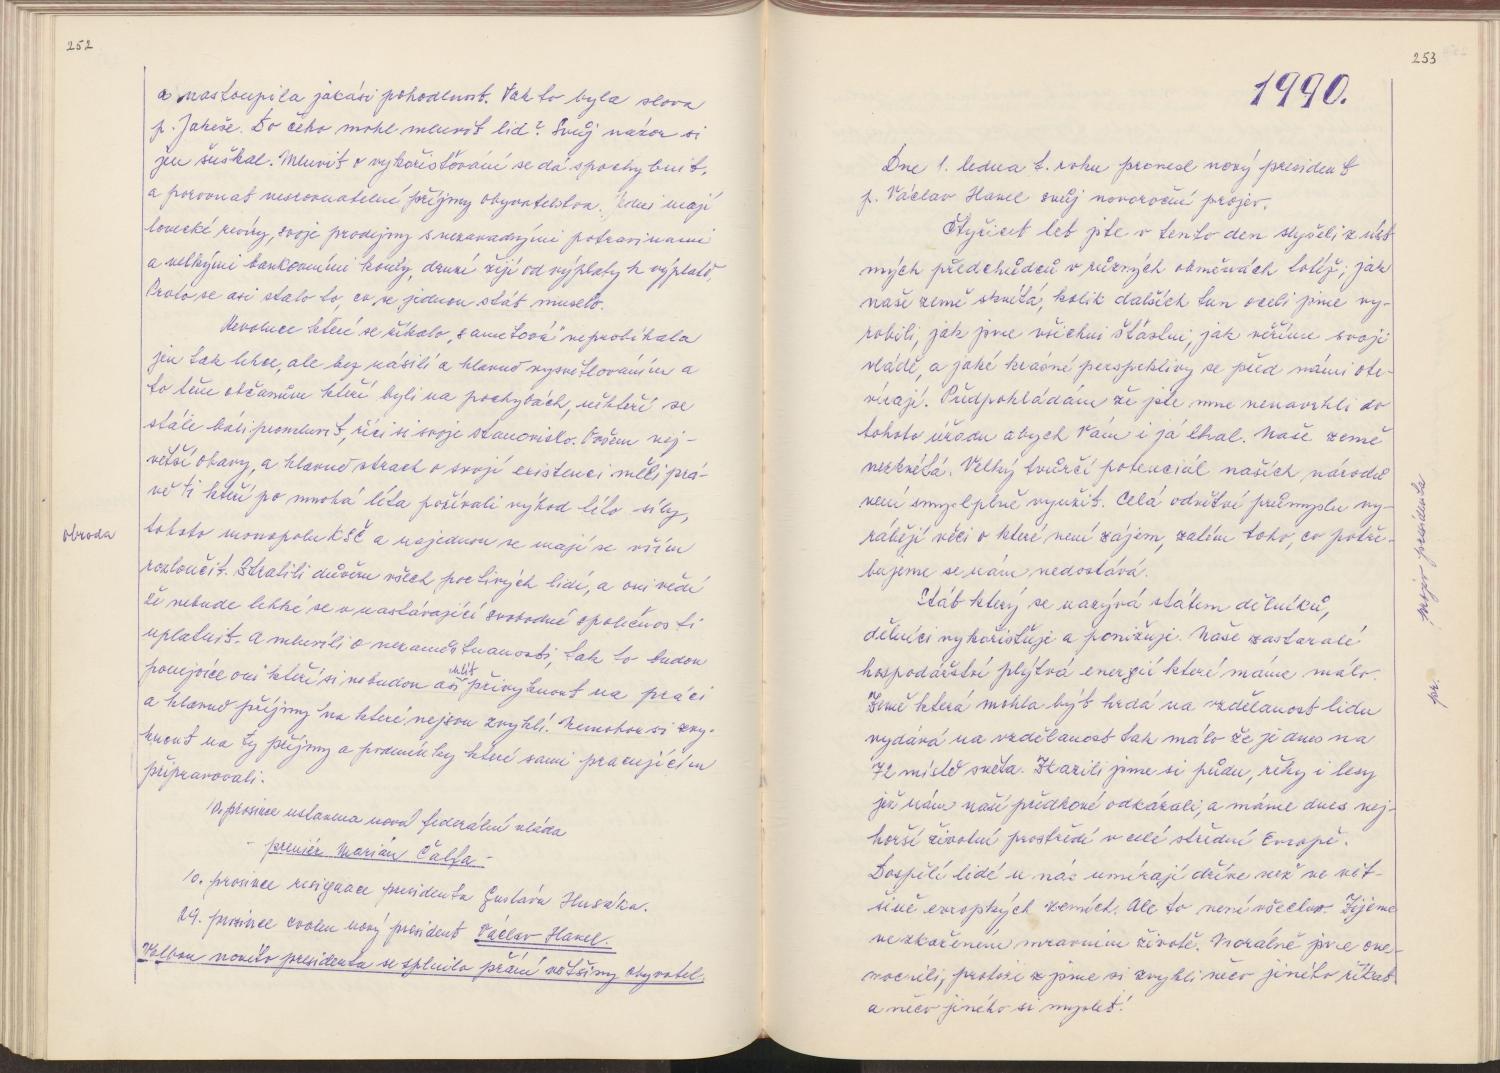 252
a nastoupila jakási pohodlnost. Tak to byla slova
p. Jakeše. Do čeho mohl mluvit lid? Svůj názor si
jen šuškal. Mluvit o vykořisťování se dá spochybnit,
a porovnat nesrovnatelné příjmy obyvatelstva. Jedni mají
lovecké revíry, svoje prodejny s nezavadnými potravinami
a velkými bankovními konty, druzí žijí od výplaty k výplatě.
Proto se asi stalo to, co se jednou stát muselo.
Revoluce které se říkalo "sametová" neprobíhala
jen tak lehce, ale bez násilí a hlavně vysvětlováním a
to těm občanům kteří byli na pochybách, někteří se
stále báli promluvit, říci si svoje stanovisko. Ovšem nej-
větší obavy, a hlavně strach o svojí existenci měli prá-
vě ti kteří po mnohá léta požívali výhod této síly,
tohoto monopolu KSČ a najednou se mají se vším
rozloučit. Ztratili důvěru všech poctivých lidí, a oni vědí
že nebude lehké se v nastávající svobodné společnosti
uplatnit. A mluvili o nezaměstnanosti, tak to budou
ponejvíce oni kteří si nebudou asi chtít přivyknout na práci
a hlavně příjmy na které nejsou zvyklí! Nemohou si zvy-
knout na ty příjmy a podmínky které sami pracujícím
připravovali.
10. prosince ustavena nová federální vláda
- premiér Marián Čalfa -
10. prosince resignace presidenta Gustáva Husáka.
29. prosince zvolen nový president Václav Havel.
Volbou nového presidenta se splnilo přání většiny obyvatel.
Obroda
253
1990.
Dne 1. ledna t. roku pronesl nový president
p. Václav Havel svůj novoroční projev.
Čtyřicet let jste v tento den slyšeli z úst
mých předchůdců v různých obměnách totéž; jak
naše země vzkvétá, kolik dalších tun oceli jsme vy-
robili, jak jsme všichni šťastni, jak věříme svojí
vládě, a jaké krásné perspektivy se před námi ote-
vírají. Předpohládám že jste mne nenavrhli do
tohoto úřadu abych Vám i já lhal. Naše země
nezkvétá. Velký tvůrčí potenciál našich národů
není smysplplně využit. Celá odvětví průmyslu vy-
rábějí věci o které není zájem, zatím toho, co potře-
bujeme se nám nedostává.
Stát který se nazývá státem dělníků,
dělníci vykořisťuje a ponižuje. Naše zastaralé
hospodářství plýtvá energií které máme málo.
Země která mohla být hrdá na vzdělanost lidu
vydává na vzdělanost tak málo že je dnes na
72 místě světa. Zkazili jsme si půdu, řeky i lesy
jež nám naší předkové odkázali, a máme dnes nej-
horší životní prostředí v celé střední Evropě.
Dospělí lidé u nás umírají dříve než ve vět-
šině evropských zemích. Ale to není všechno. Žijeme
ve zkaženém mravním životě. Morálně jsme one-
mocněli, protože jsme si zvykli něco jiného říkat
a něco jiného si myslet!
projev presidenta
pr.